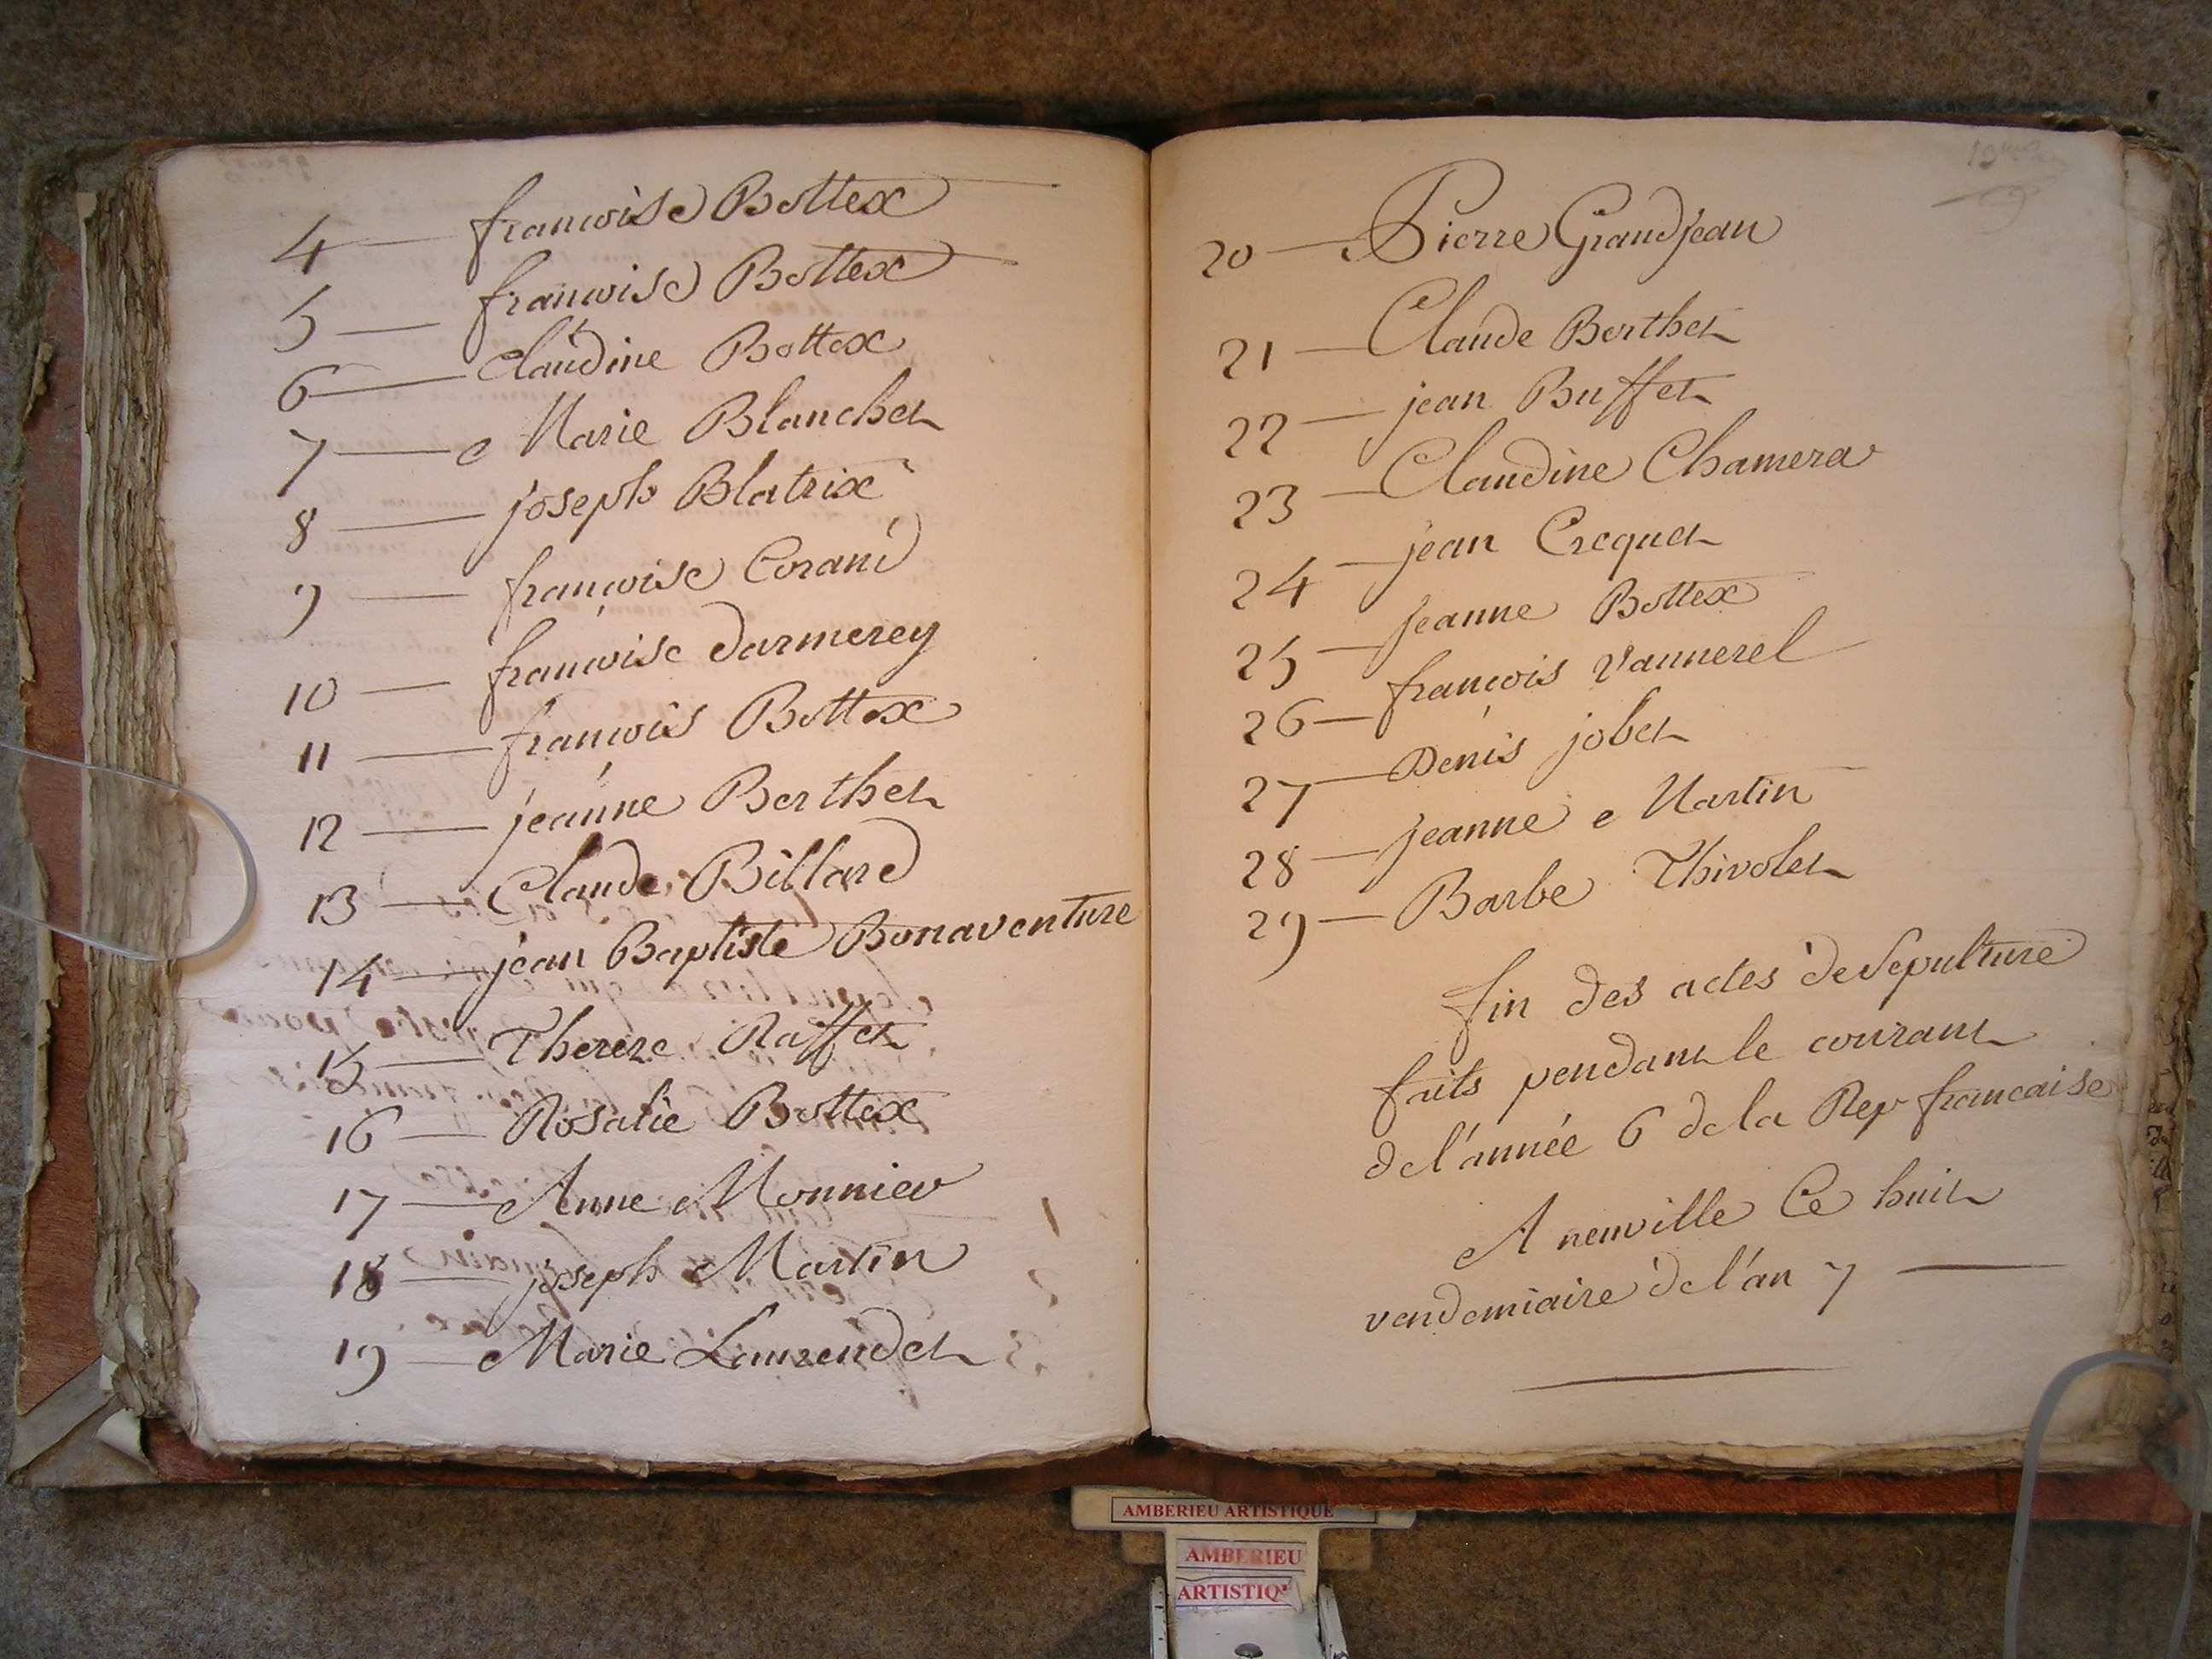 4 — françoise Bottex
5 — françoise Bottex
6 — Claudine Bottex
7 — Marie Blanchet
8 — joseph Blatrix
9 — françoise Corand
10 — françoise darmerey
11 — françois Bottex
12 — jeanne Berthet
13 — Claude Billard
14 — jean Baptiste Bonaventure
15 — Therèze Raffet
16 — Rosalie Bottex
17 — Anne Monnier
18 — joseph Martin
19 — Marie Laurendet
20 — Pierre Grandjean
21 — Claude Berthet
22 — jean Buffet
23 — Claudine Chamera
24 — jean Crequet
25 — jeanne Bottex
26 — françois Vannerel
27 — Denis jobet
28 — jeanne Martin
29 — Barbe Thivolet
fin des actes de Sepulture
faits pendant le courant
de l'année 6 de la Rep francaise
A neuville Ce huit
vendemiaire de l'an 7 —
AMBERIEU ARTISTIQUE
AMBERIEU
ARTISTIQ